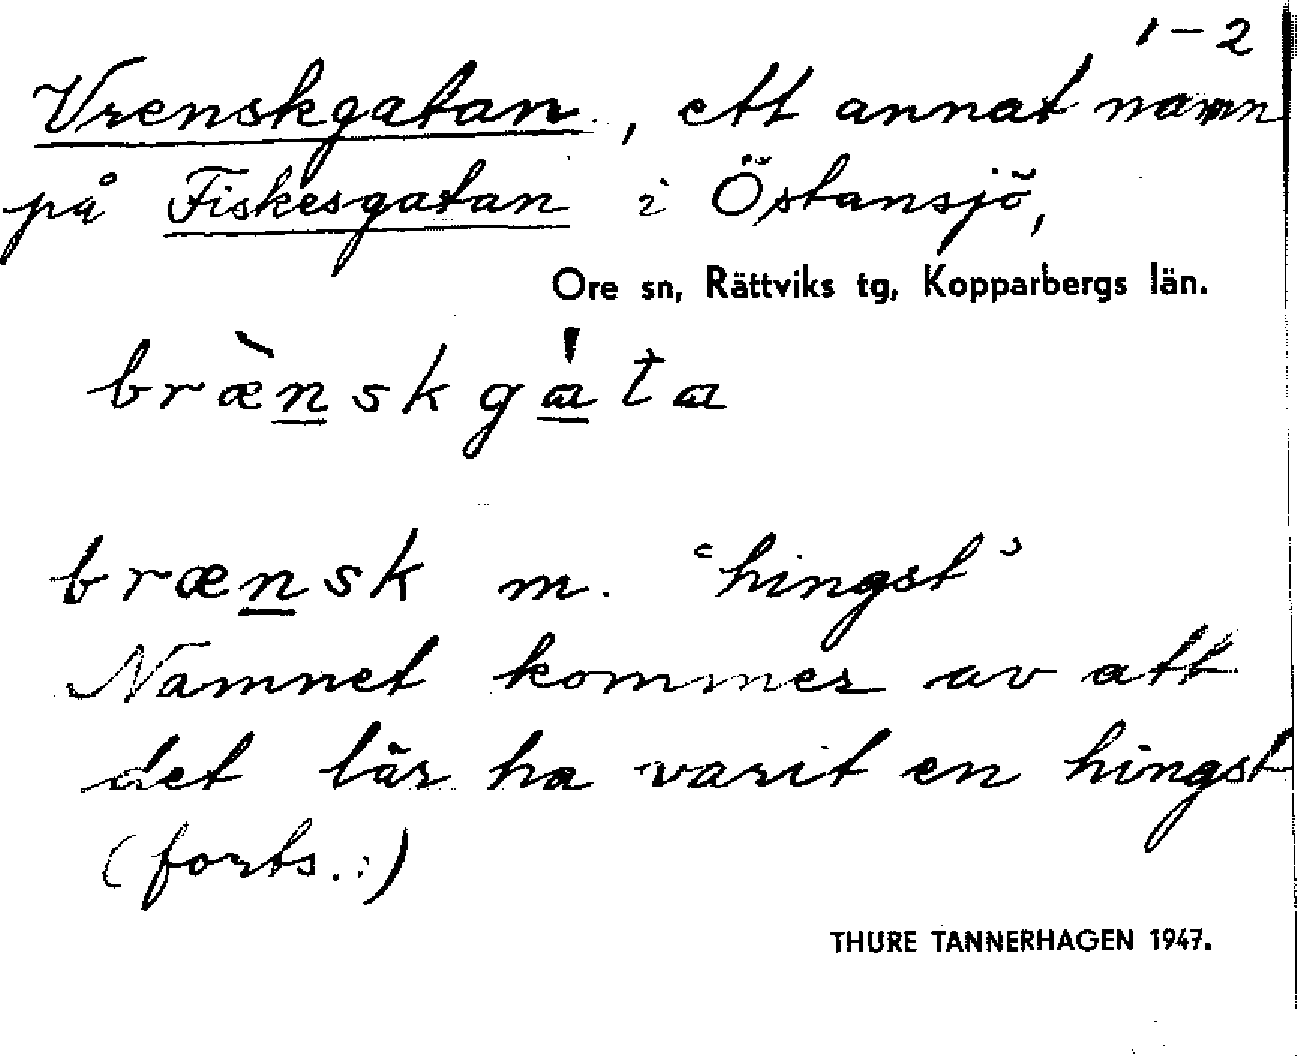 1-2
Vrenskgatan, ett annat namn
på Fiskesgatan i Östansjö,
Ore sn, Rättviks tg, Kopparbergs län.
bræ̀nskga̍ta
brænsk m. ‘hingst’
Namnet kommer av att
det lär ha varit en hingst
(forts.:)
THURE TANNERHAGEN 1947.